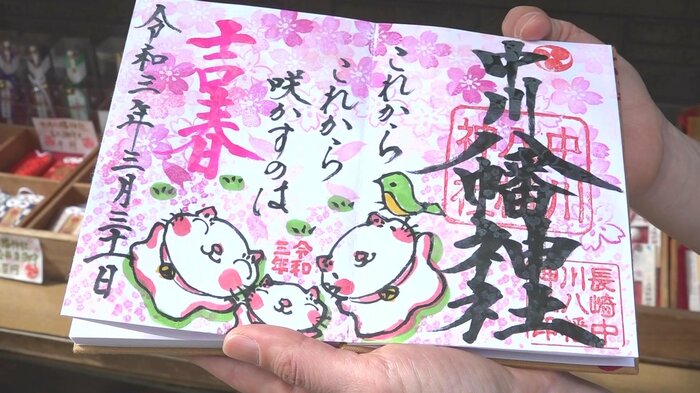 中川八幡神社
中川
八幡
神社
長崎中
川八幡
神社印
これから
これから
咲かすのは
吉春
令和
三年
令和三年三月三十一日